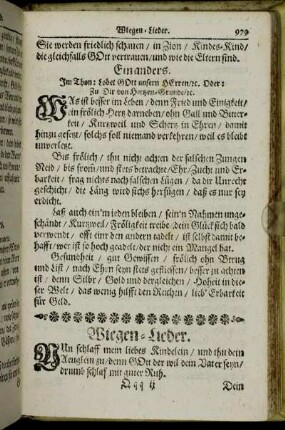 Wiegen-Lieder. 979
Sie werden friedlich schauen / in Zion / Kindes-Kind /
die gleichfalls GOtt vertrauen / und wie die Eltern sind.
Ein anders.
Im Thon: Lobet GOtt unsern HErren / ꝛc. Oder:
Zu Dir von Hertzen-Grunde / ꝛc.
WAs ist besser im Leben / denn Fried und Einigkeit /
ein frölich Hertz darneben / ohn Gall und Bitter-
keit / Kurtzweil und Schertz in Ehren / damit
hinzu gesetzt / solchs soll niemand verkehren / weil es bleibt
unverletzt.
Biß frölich / thu nicht achten der falschen Zungen
Neid / biß from / und stets betrachte / Ehr / Zucht und Er-
barkeit / frag nichts nach falschen Lügen / da dir Unrecht
geschicht / die Läng wird sichs herfügen / daß es nur sey
erdicht.
Laß auch ein'm jeden bleiben / sein'n Nahmen unge-
schändt / Kurtzweil / Frölichkeit treibe / dein Glück sich bald
verwendt / offt ein den andern tadelt / ist selbst damit be-
hafft / wer ist so hoch geadelt / der nicht ein Mangel hat.
Gesundheit / gut Gewissen / frölich ohn Betrug
und List / nach Ehrn seyn stets geflissen / besser zu achten
ist / denn Silbr / Gold und dergleichen / Hoheit in die-
ser Welt / das wenig hilfft den Reichen / lieb' Erbarkeit
für Geld.
Wiegen-Lieder.
NUn schlaff mein liebes Kindelein / und thu dein
Aeuglein zu / denn GOtt der wil dein Vater seyn /
drum schlaf mit guter Ruh.
Qqq ij Dein